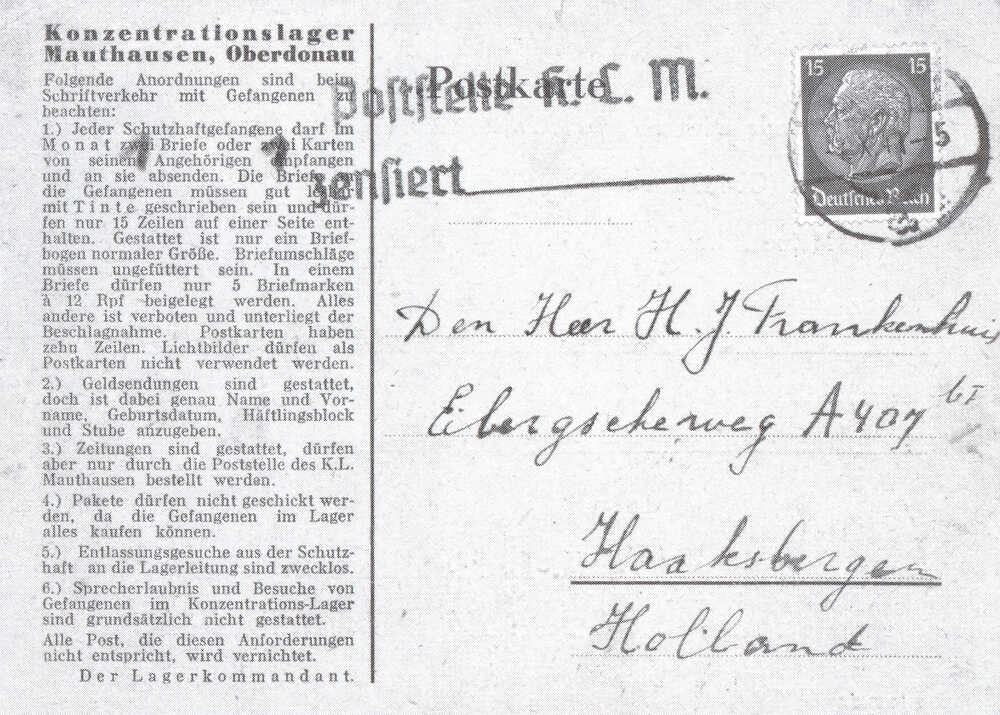 Konzentrationslager
Mauthausen, Oberdonau
Folgende Anordnungen sind beim
Schriftverkehr mit Gefangenen zu
beachten:
1.) Jeder Schutzhaftgefangene darf im
Monat zwei Briefe oder zwei Karten
von seinen Angehörigen empfangen
und an sie absenden. Die Briefe an
die Gefangenen müssen gut lesbar
mit Tinte geschrieben sein und dür-
fen nur 15 Zeilen auf einer Seite ent-
halten. Gestattet ist nur ein Brief-
bogen normaler Größe. Briefumschläge
müssen ungefüttert sein. In einem
Briefe dürfen nur 5 Briefmarken
à 12 Rpf beigelegt werden. Alles
andere ist verboten und unterliegt der
Beschlagnahme. Postkarten haben
zehn Zeilen. Lichtbilder dürfen als
Postkarten nicht verwendet werden.
2.) Geldsendungen sind gestattet,
doch ist dabei genau Name und Vor-
name, Geburtsdatum, Häftlingsblock
und Stube anzugeben.
3.) Zeitungen sind gestattet, dürfen
aber nur durch die Poststelle des K.L.
Mauthausen bestellt werden.
4.) Pakete dürfen nicht geschickt wer-
den, da die Gefangenen im Lager
alles kaufen können.
5.) Entlassungsgesuche aus der Schutz-
haft an die Lagerleitung sind zwecklos.
6.) Sprecherlaubnis und Besuche von
Gefangenen im Konzentrations-Lager
sind grundsätzlich nicht gestattet.
Alle Post, die diesen Anforderungen
nicht entspricht, wird vernichtet.
Der Lagerkommandant.
Postkarte
Poststelle K. L. M.
zensiert
15 15
Deutsches Reich
Den Heer H. J. Frankenhuis
Eibergscheweg A 407 bI
Haaksbergen
Holland